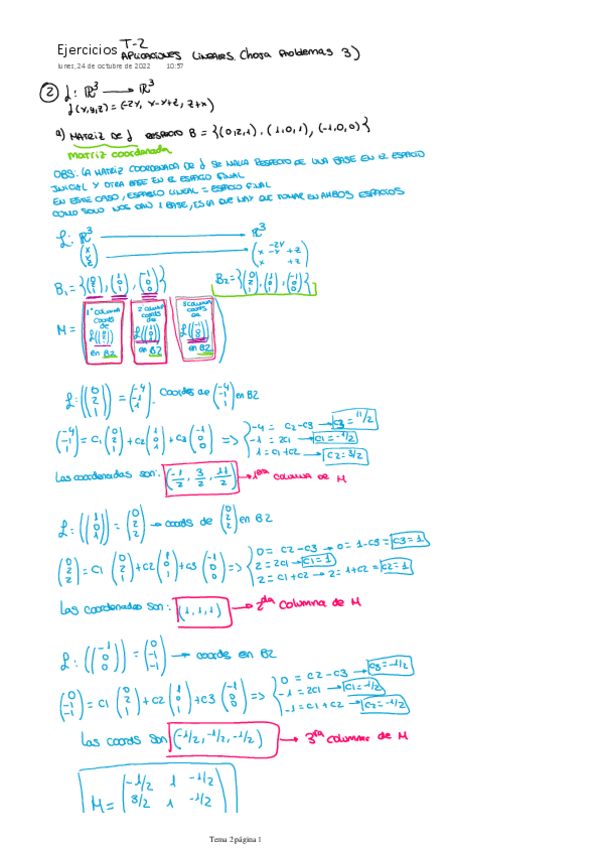 Ejercicios T-2
APLICACIONES LINEALES. (hoja Problemas 3)
lunes, 24 de octubre de 2022 10:57
② f: ℝ³ → ℝ³
f(x,y,z) = (-2y, x-y+z, z+x)
a) MATRIZ DE f RESPECTO B = {(0,2,1), (1,0,1), (-1,0,0)}
Matriz coordenada
OBS: LA MATRIZ COORDENADA DE f SE HALLA RESPECTO DE UNA BASE EN EL ESPACIO
INICIAL Y OTRA BASE EN EL ESPACIO FINAL
EN ESTE CASO, ESPACIO LINEAL = ESPACIO FINAL
COMO SOLO NOS DAN 1 BASE, ES LA QUE HAY QUE TOMAR EN AMBOS ESPACIOS
f: ℝ³ → ℝ³
(x y z) → (-2y x-y+z x+z)
B1 = {(0 2 1), (1 0 1), (-1 0 0)} B2 = {(0 2 1), (1 0 1), (-1 0 0)}
M = (1ª columna coords de f((0 2 1)) en B2 2 columna coords de f((1 0 1)) en B2 3 columna coords de f((-1 0 0)) en B2)
f: ((0 2 1)) = (-4 -1 1). Coords de (-4 -1 1) en B2
(-4 -1 1) = C1 (0 2 1) + C2 (1 0 1) + C3 (-1 0 0) => { -4 = C2-C3 → C3 = 11/2
-1 = 2C1 → C1 = -1/2
1 = C1+C2 → C2 = 3/2
Las coordenadas son: (-1/2, 3/2, 11/2) → 1era columna de M
f: ((1 0 1)) = (0 2 2) → coords de (0 2 2) en B2
(0 2 2) = C1 (0 2 1) + C2 (1 0 1) + C3 (-1 0 0) => { 0 = C2-C3 → 0 = 1-C3 = C3 = 1
2 = 2C1 → C1 = 1
2 = C1+C2 → 2 = 1+C2 = C2 = 1
Las coordenadas son: (1, 1, 1) → 2da columna de M
f: ((-1 0 0)) = (0 -1 -1) → coords en B2
(0 -1 -1) = C1 (0 2 1) + C2 (1 0 1) + C3 (-1 0 0) => { 0 = C2-C3 → C3 = -1/2
-1 = 2C1 → C1 = -1/2
-1 = C1+C2 → C2 = -1/2
Las coords son (-1/2, -1/2, -1/2) → 3ra columna de M
M = (-1/2 1 -1/2
3/2 1 -1/2
Tema 2 página 1